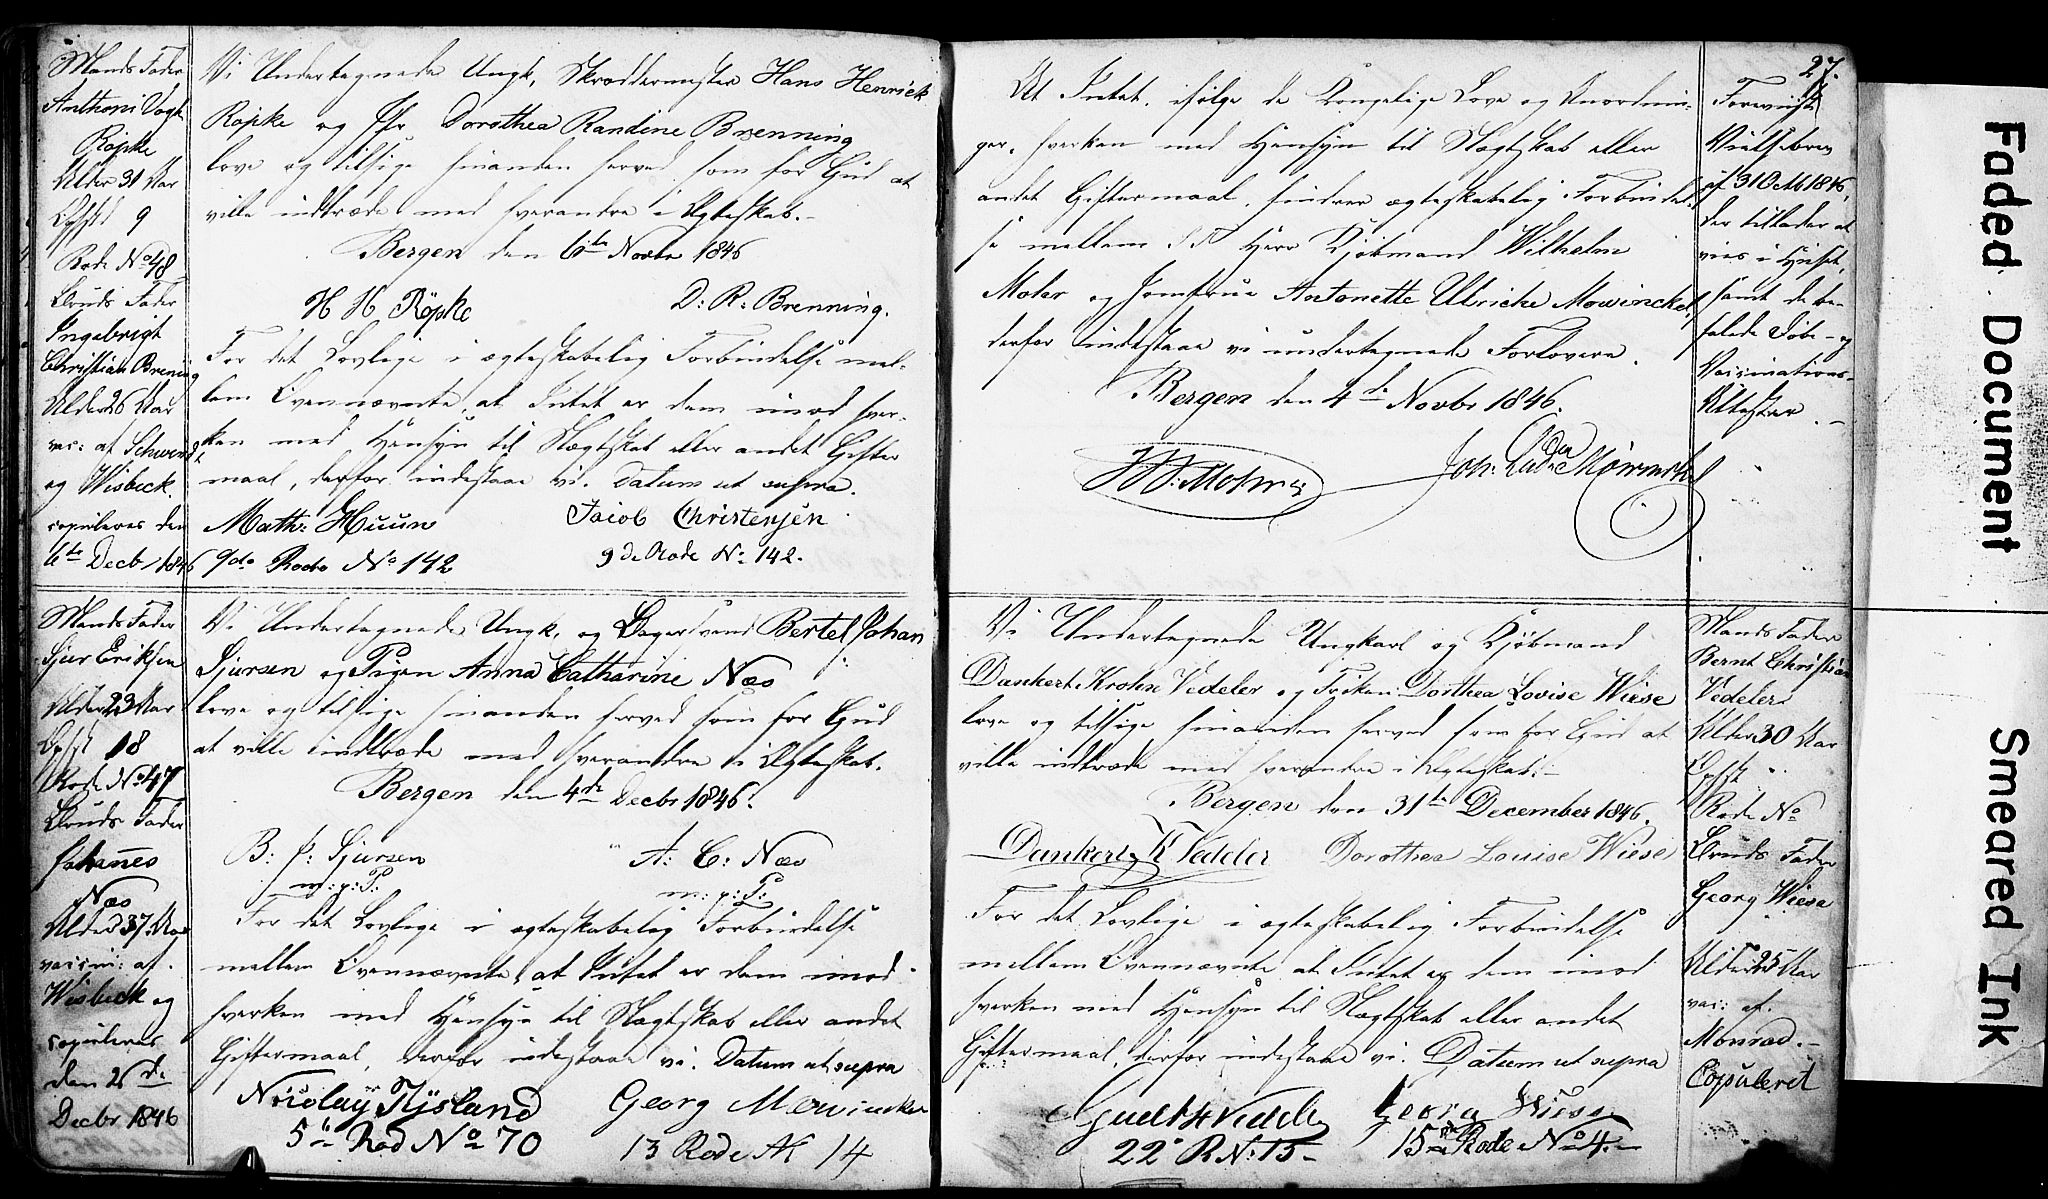 Mands Fader
Anthoni Vogt
Röpke
Alder 31 Aar
Opfstl 9
Rode No 48
Bruds Fader
Ingebrigt
Christian Brening
Alder 26 Aar
vac: af Schwindt
og Wisbeck.
copuleres den
6te Decbr 1846
Vi Undertegnede Ungk. Skræddermester Hans Henrick
Röpke og Jfr Dorothea Randine Brenning
love og tilsige hinanden herved som for Gud at
ville indtræde med hverandre i Ægteskab.-
Bergen den 6te Novbr 1846
H H Röpke D: R: Brenning.
For det Lovlige i ægteskabelig Forbindelse mel-
lem Ovennævnte, at Intet er dem imod hver-
ken med Hensyn til Slægtskab eller andet Gifter
maal, derfor indestaae vi. Datum ut supra.
Math: Huun Jacob Christensen
9de Rode No 142 9de Rode No 142.
Mands Fader
Sjur Eriksen
Alder 23 Aar
Opfst 18
Rode No 47
Bruds Fader
Johannes
Næs
Alder 37 Aar
vaccin: af
Wisbeck og
copuleres
den 26de
Decbr 1846
Vi Undertegnede Ungk. og Bagersvend Bertel Johan
Sjursen og Pigen Anna Catharine Næs
love og tilsige hinanden herved som for Gud
at ville indtræde med hverandre i Ægteskab.
Bergen den 4de Decbr 1846.
B: J: Sjursen A: C: Næs
m: p: P. m: p: P:
For det Lovlige i ægteskabelig Forbindelse
mellem Ovennævnte, at Intet er dem imod
hverken med Hensyn til Slægtskab eller andet
Giftermaal, derfor indestaae vi. Datum ut supra
Nicolay Tysland Georg Mowinckel
5te Rod No 70 13 Rode No 14
27.
At Intet, ifølge de Kongelige Love og Anordnin-
ger, hverken med Hensyn til Slægtskab eller
andet Giftermaal, hindrer ægteskabelig Forbindel-
se mellem S T Herr Kjøbmand Wilhelm
Mohr og Jomfrue Antonette Ulriche Mowinckel,
derfor indestaae vi undertegnede Forlovere.
Bergen den 4de Novbr 1846.
Mohr Joh: Mowinckel
Forevist
Vielsebrev
af 31 Octb 1846,
der tillader at
vies i Huset,
samt de be-
falede Døbe- og
Vaccinations-
Attester.-
Vi Undertegnede Ungkarl og Kjøbmand
Dankert Krohn Vedeler og Frøken Dorthea Lovise Wiese
love og tilsige hinanden herved som for Gud at
ville indtræde med hverandre i Ægteskab.-
Bergen den 31te December 1846.
Dankert K Vedeler Dorothea Louise Wiese
For det Lovlige i ægteskabelig Forbindelse
mellem Ovennævnte at Intet er dem imod
hverken med Hensyn til Slægtskab eller andet
Giftermaal, derfor indestaae vi. Datum ut supra
Vedeler Georg Wiese
22 R No: 15- 15de Rode No 4.-
Mands Fader
Bernt Christian
Vedeler
Alder 30 Aar
Opfst "
Rode No
Bruds Fader
Georg Wiese
Alder 25 Aar
vac: af
Monrad.-
Copuleret
Faded Document
Smeared Ink